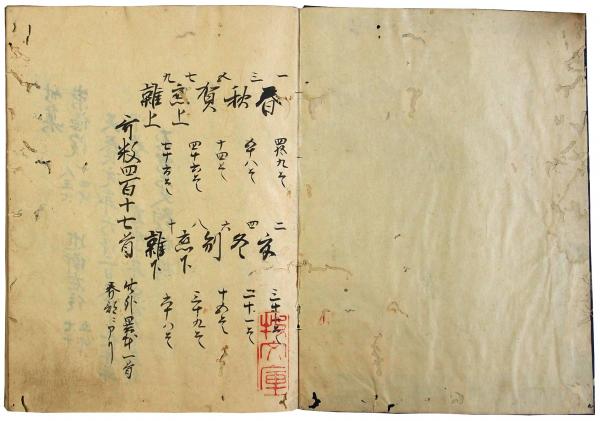 一 春 四十九首 二 夏 三十一首
三 秋 五十八首 四 冬 二十一首
五 賀 十四首 六 別 十五首
七 恋上 四十六首 八 恋下 三十九首
九 雑上 七十六首 十 雑下 六十八首
哥数四百十七首
此外異本一首
文庫